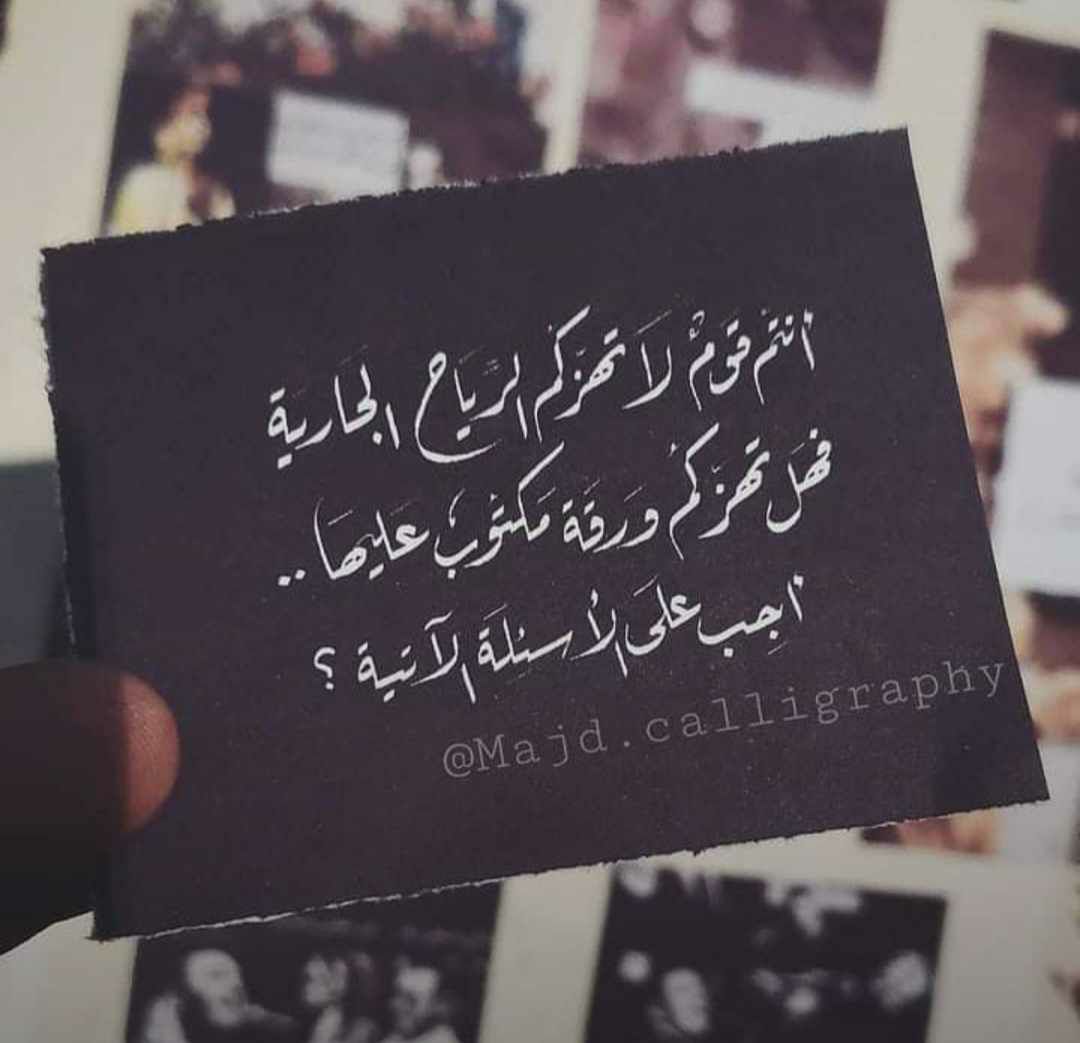 انتم قَومٌ لاَ تهزّكم الرِّيَاح الجَارية
فهَل تهزّكمْ وَرقَة مَكتوبٌ عَليهَا ..
اجِب علَى الأسئلَة الآتية ؟
@Majd.calligraphy